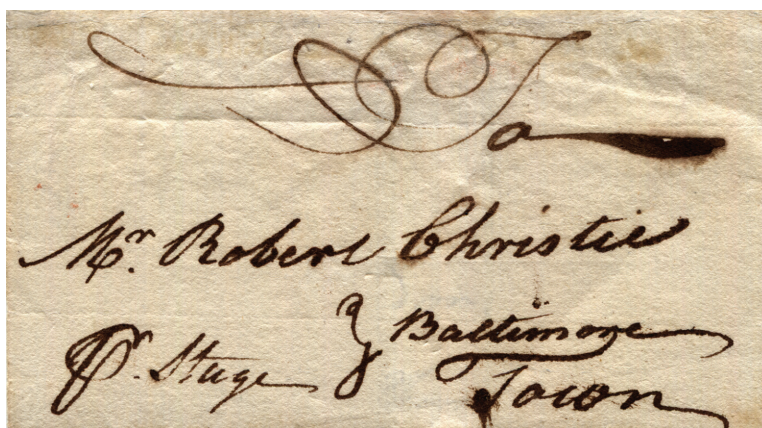 To
Mr. Robert Christie
Pr. Stage } Baltimore
Town